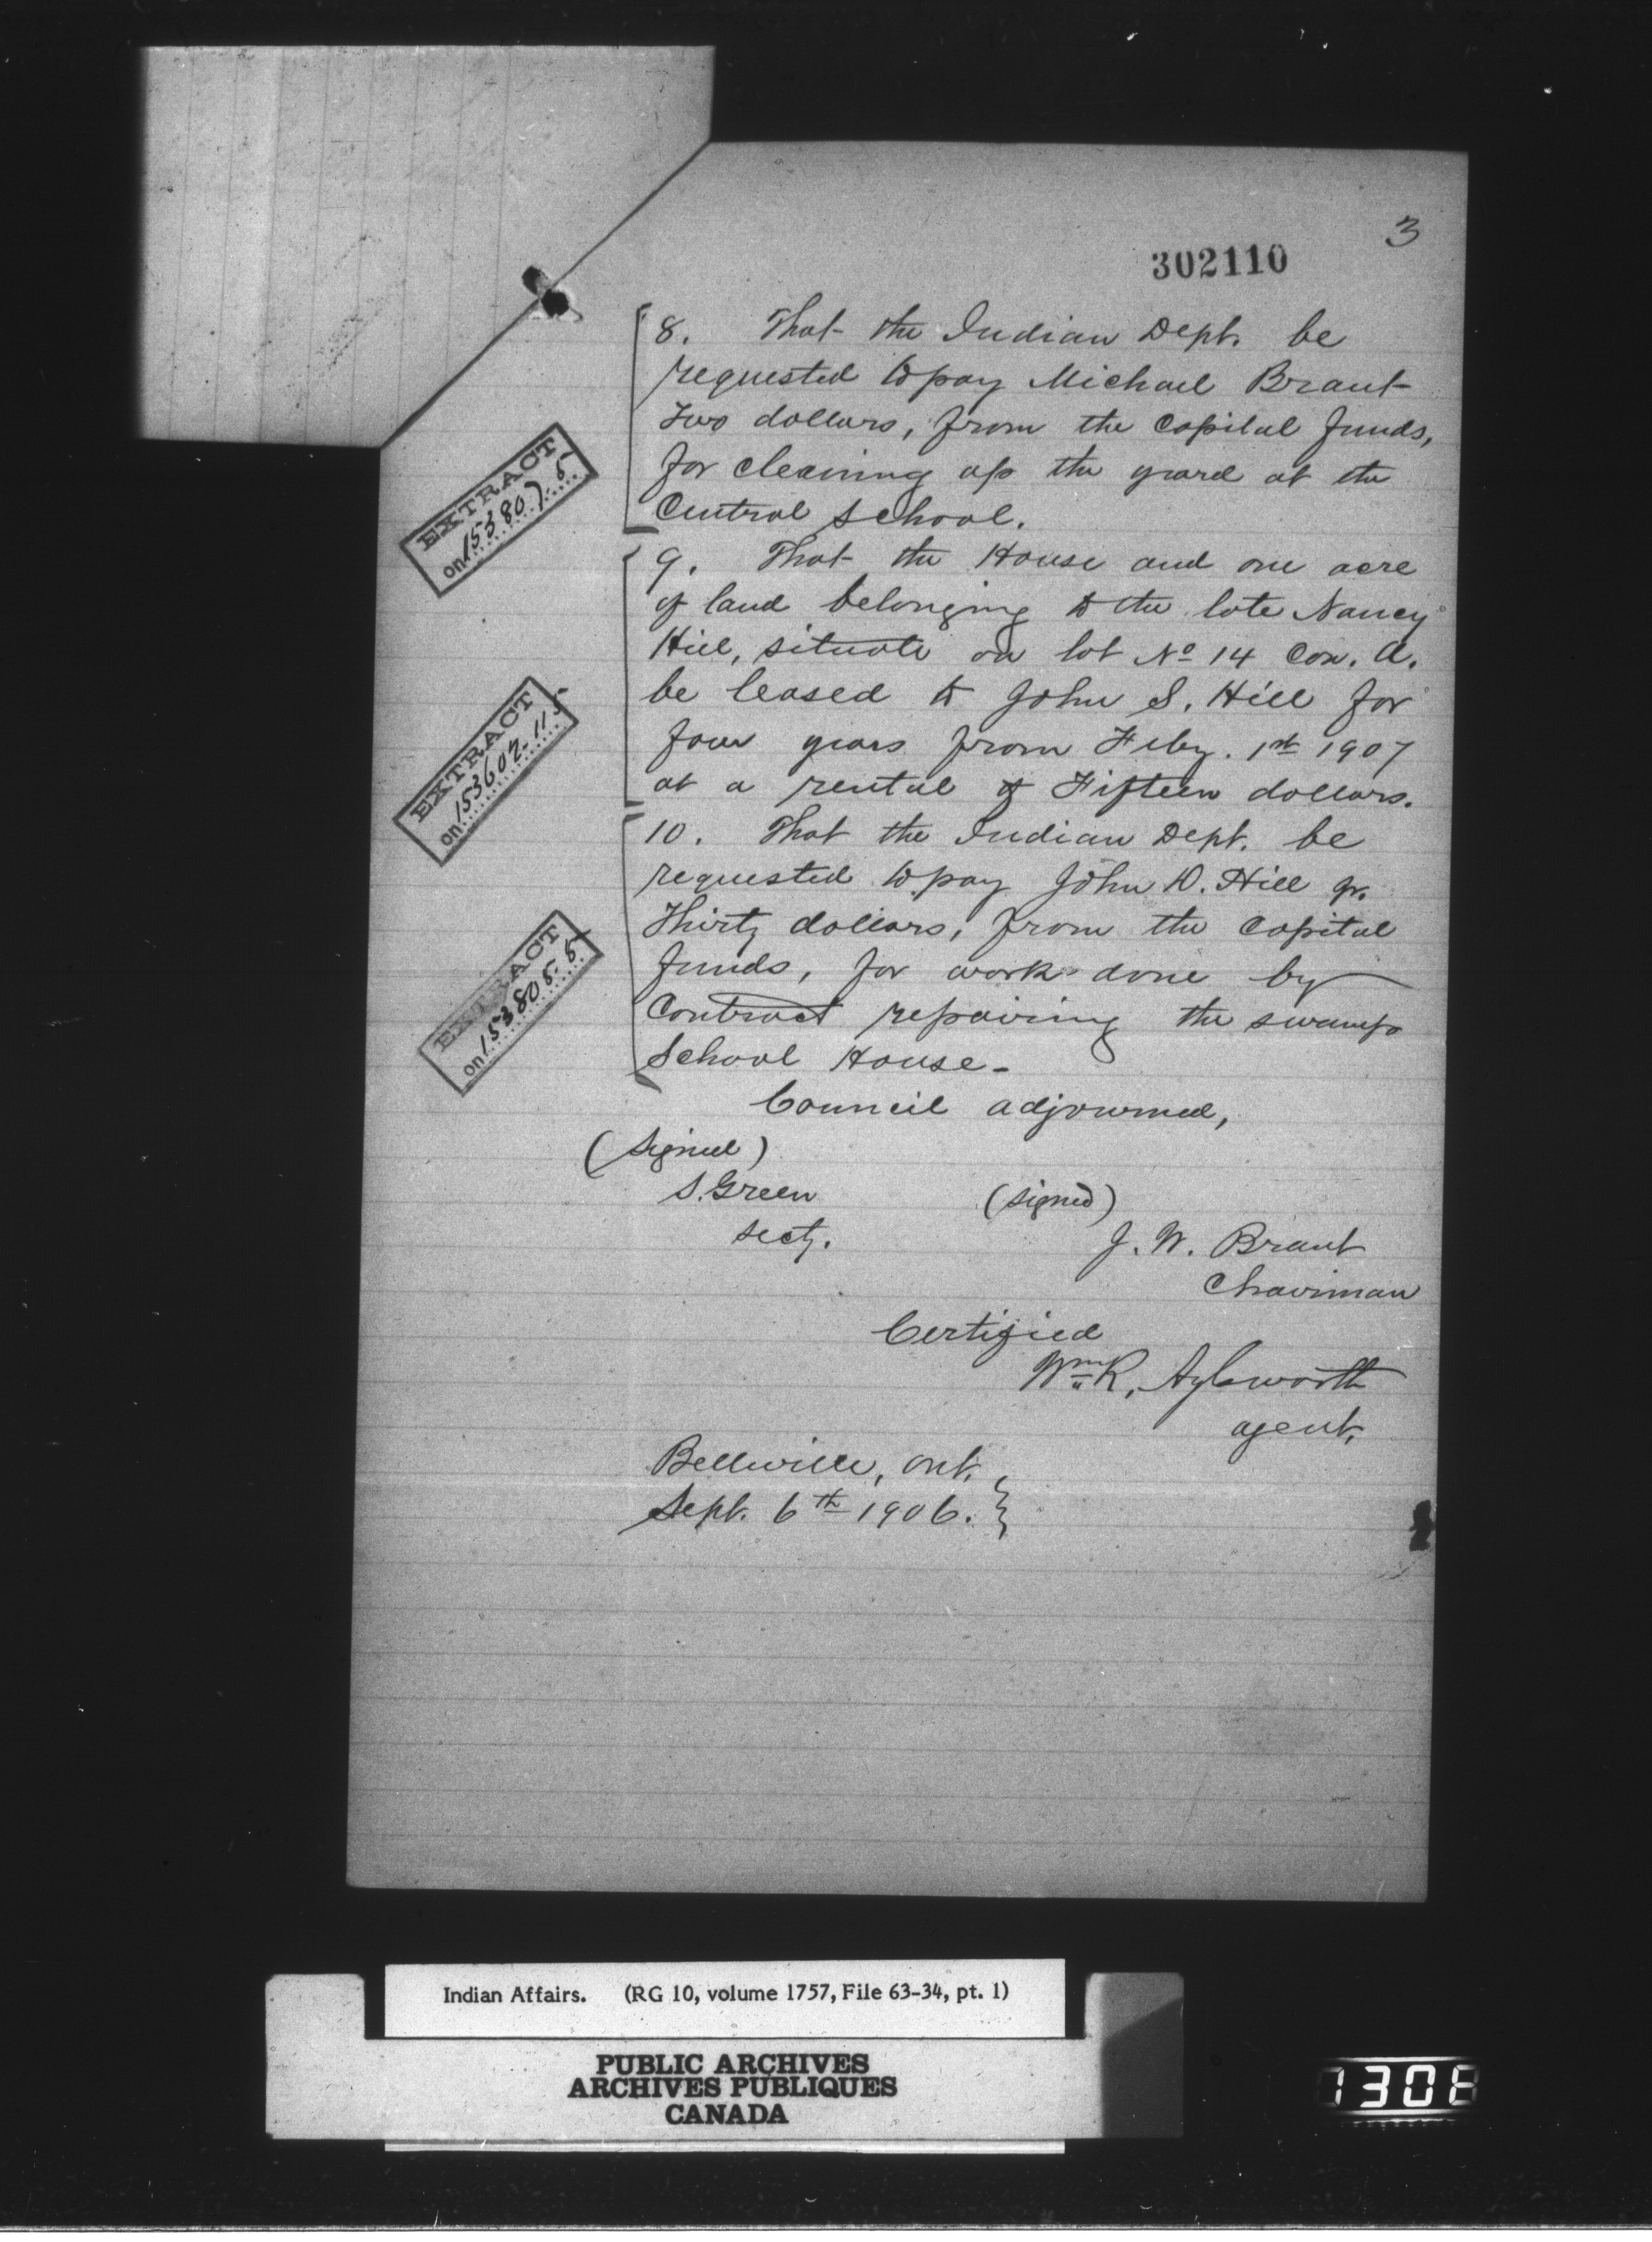 3
302110
8. That the Indian Dept. be
requested to pay Michael Brant
Two dollars, from the Capital funds,
for cleaning up the yard at the
Central School.
EXTRACT
on 153807-5
9. That the House and one acre
of land belonging to the late Nancy
Hill, situate on lot No 14 Con. A.
be leased to John S. Hill for
four years from Feby. 1st 1907
at a rental of Fifteen dollars.
EXTRACT
on 153602-115
10. That the Indian Dept. be
requested to pay John D. Hill Jr.
Thirty dollars, from the Capital
funds, for work done by
Contract repairing the swamp
School House-
EXTRACT
on 153808-5
Council adjourned,
(Signed)
S. Green
Secty.
(Signed)
J. W. Brant
Chairman
Certified
Wm R. Aylsworth
agent.
Belleville, Ont.
Sept. 6th 1906.
Indian Affairs. (RG 10, volume 1757, File 63-34, pt. 1)
PUBLIC ARCHIVES
ARCHIVES PUBLIQUES
CANADA